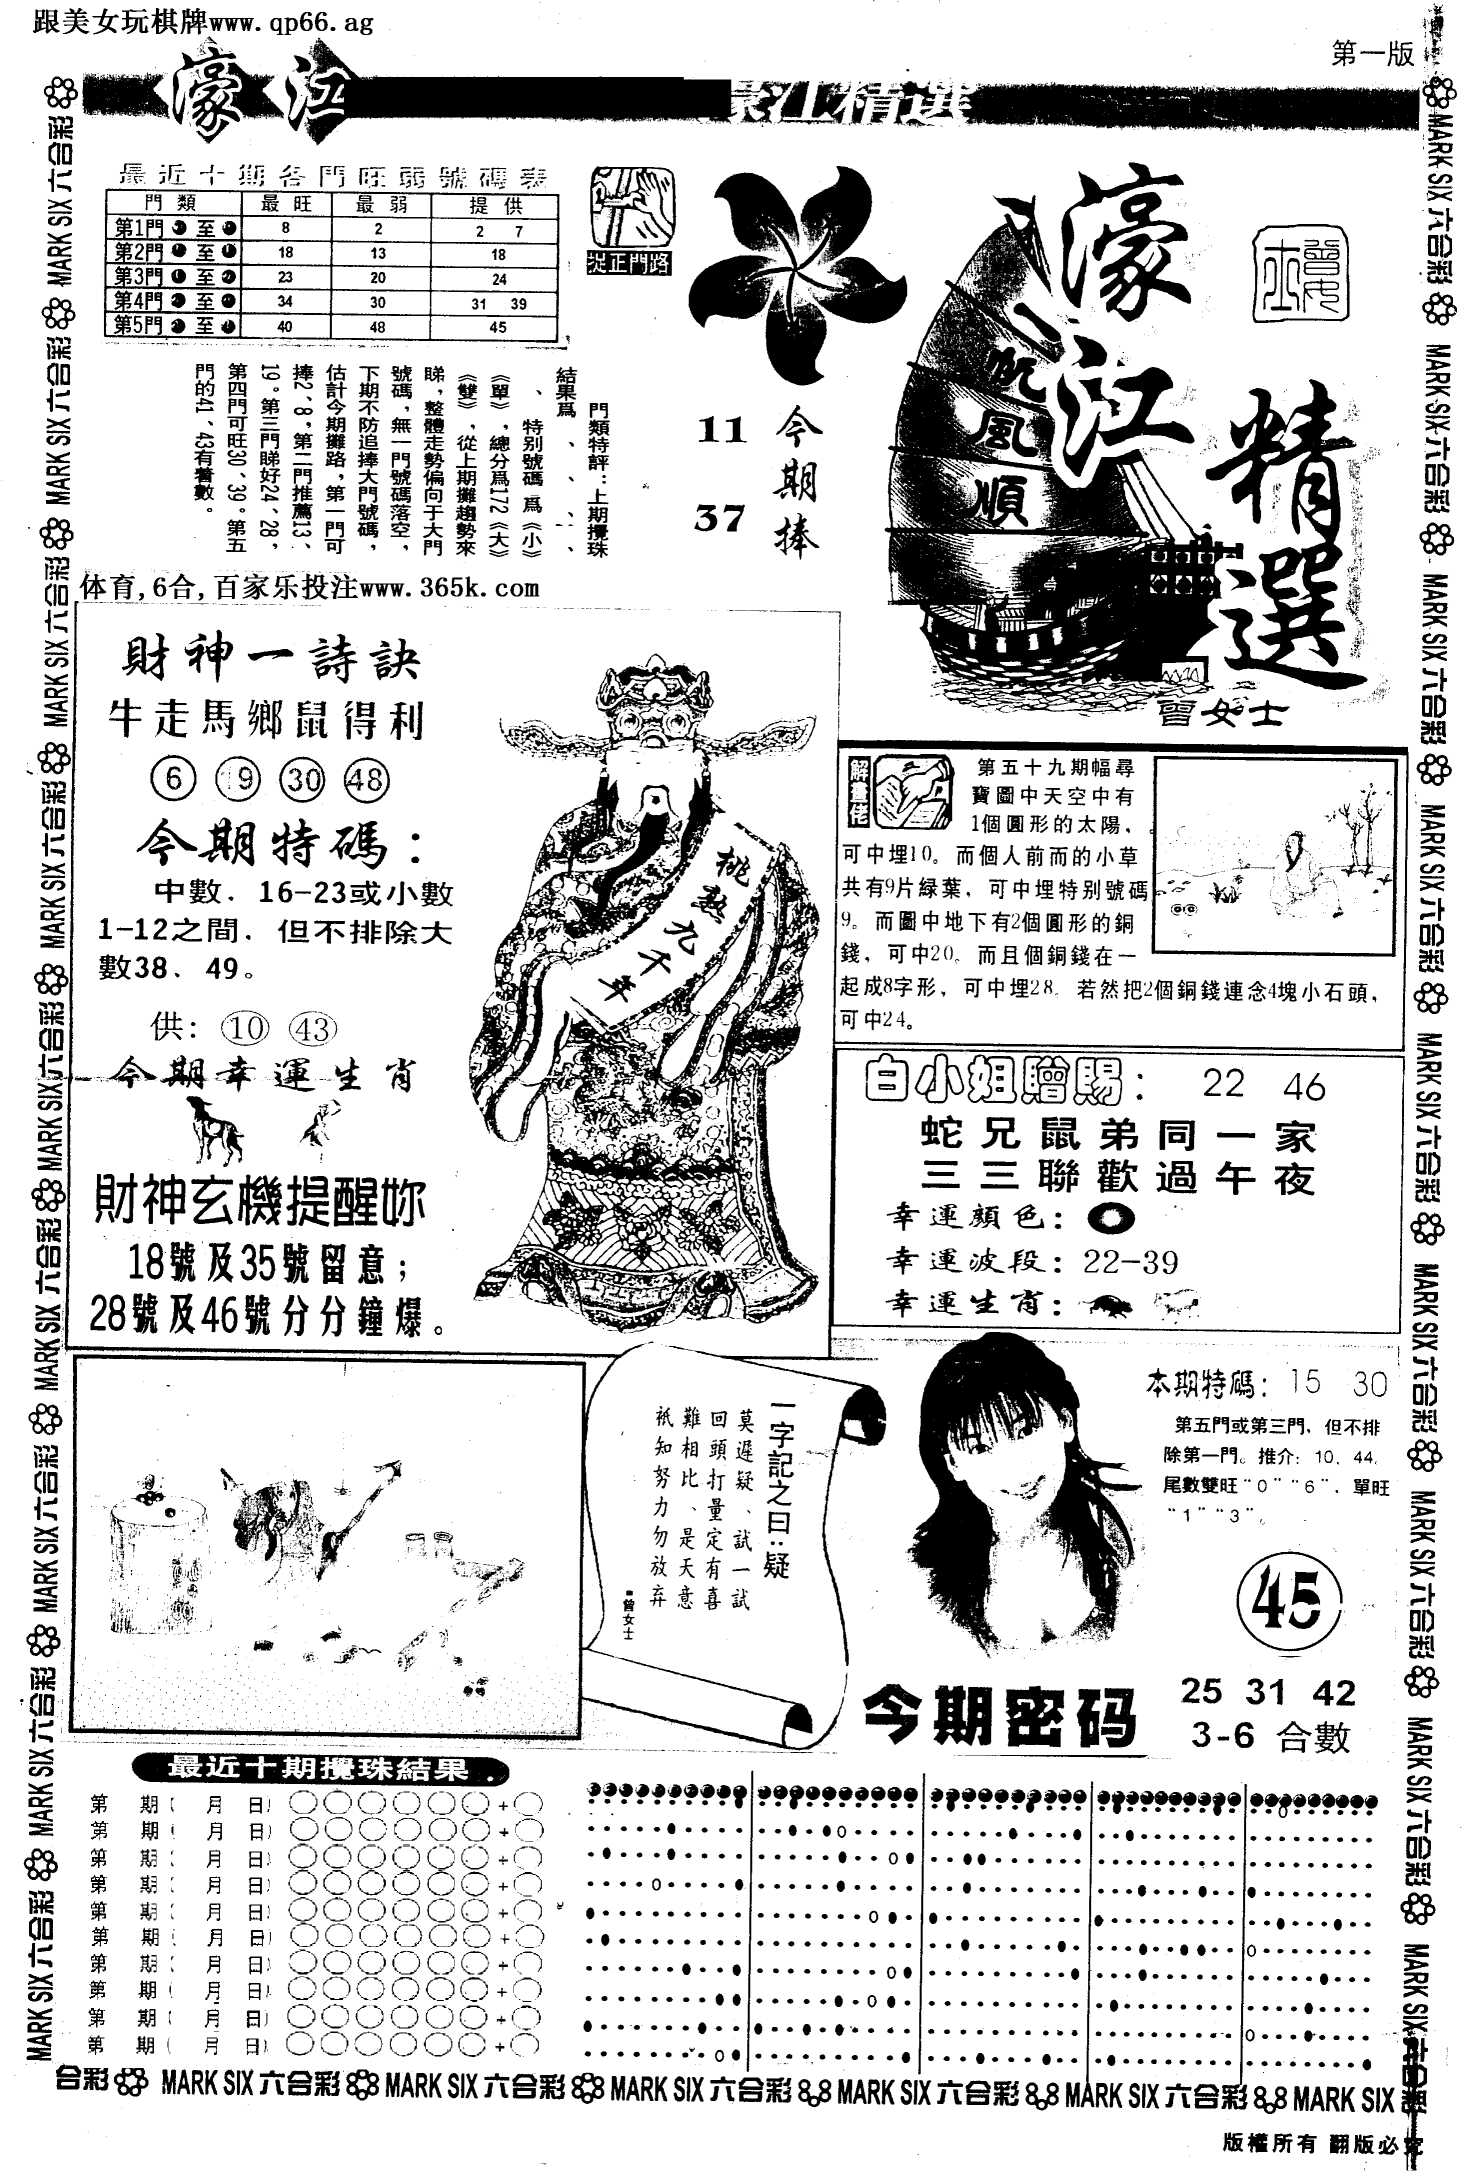 跟美女玩棋牌www.qp66.ag
第一版
濠江
濠江精選
最近十期各門旺弱號碼表
門類 最旺 最弱 提供
第1門 至 8 2 2 7
第2門 至 18 13 18
第3門 至 23 20 24
第4門 至 34 30 31 39
第5門 至 40 48 45
捉正門路
門類特評：上期攪珠
結果爲、、、、、
、特别號碼爲《小》
《單》，總分爲172《大》
《雙》，從上期攤趨勢來
睇，整體走勢偏向于大門
號碼，無一門號碼落空，
下期不防追捧大門號碼，
估計今期攤路，第一門可
捧2、8，第二門推薦13、
19。第三門睇好24、28，
第四門可旺30、39。第五
門的41、43有著數。
今期捧
11
37
濠江精選
一帆風順
曾女士
体育,6合,百家乐投注www.365k.com
財神一詩訣
牛走馬鄉鼠得利
6 19 30 48
今期特碼：
中數．16-23或小數
1-12之間．但不排除大
數38．49。
供：10 43
今期幸運生肖
財神玄機提醒妳
18號及35號留意；
28號及46號分分鐘爆。
桃熟九千年
解畫佬
第五十九期幅尋
寶圖中天空中有
1個圓形的太陽．
可中埋10。而個人前而的小草
共有9片緑葉，可中埋特别號碼
9。而圖中地下有2個圓形的銅
錢，可中20。而且個銅錢在一
起成8字形，可中埋28．若然把2個銅錢連念4塊小石頭，
可中24。
白小姐贈賜：22 46
蛇兄鼠弟同一家
三三聯歡過午夜
幸運顏色：
幸運波段：22-39
幸運生肖：
一字記之曰：疑
莫遲疑、試一試
回頭打量定有喜
難相比、是天意
祇知努力勿放弃
■曾女士
本期特碼：15 30
第五門或第三門．但不排
除第一門。推介：10．44．
尾數雙旺“0”“6”．單旺
“1”“3”。
45
今期密码
25 31 42
3-6 合數
最近十期攪珠結果
第 期( 月 日) +
第 期( 月 日) +
第 期( 月 日) +
第 期( 月 日) +
第 期( 月 日) +
第 期( 月 日) +
第 期( 月 日) +
第 期( 月 日) +
第 期( 月 日) +
第 期( 月 日) +
合彩 MARK SIX 六合彩 MARK SIX 六合彩 MARK SIX 六合彩 MARK SIX 六合彩 MARK SIX 六合彩 MARK SIX
版權所有 翻版必究